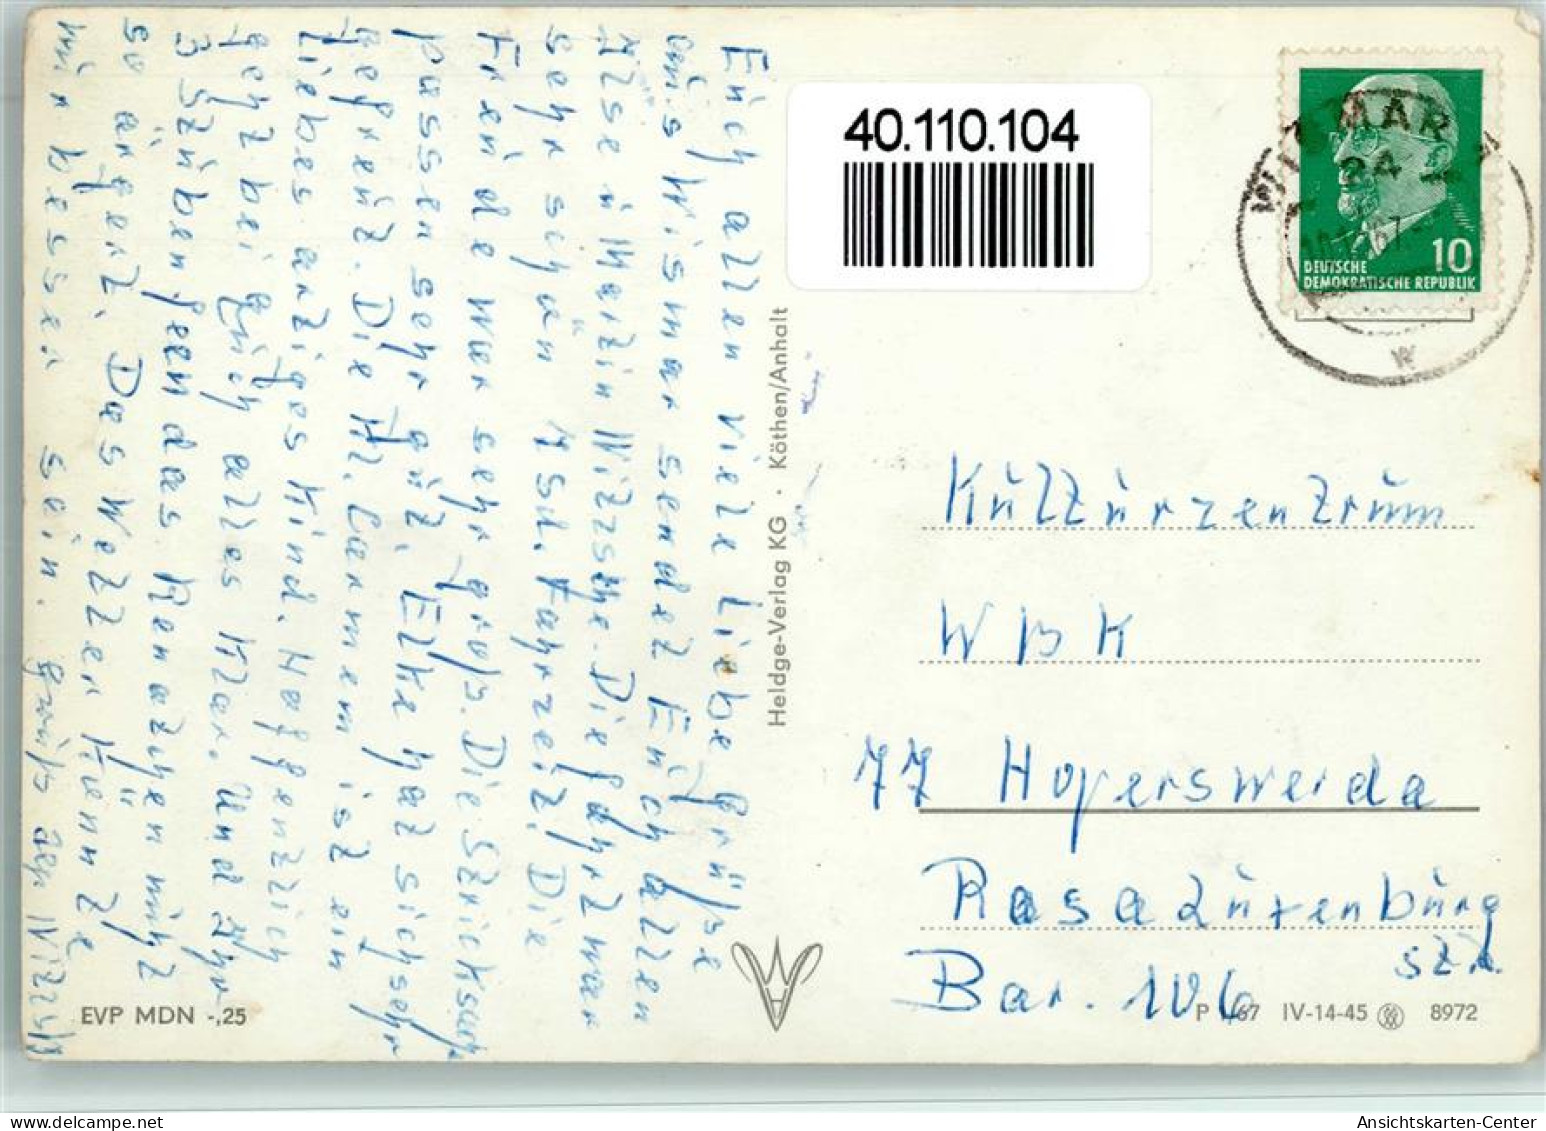 Euch allen viele Liebe Grüße
aus Wismar sendet Euch allen
Ilse u Martin Nitzsche. Die Fahrt war
sehr schön 7 Std. Fahrzeit. Die
Freude war sehr groß. Die Stricksach
passen sehr gut. Elke hat sich sehr
gefreut. Die Kl. Carmem ist ein
Liebes artiges Kind. Hoffentlich
geht bei Euch alles Klar. Und Ihr
3 Stuben
das
mich
so ärgert. Das Wetter Kennte
mir besser sein. Gruß
40.110.104
WISMAR
24
67
10
DEUTSCHE
DEMOKRATISCHE REPUBLIK
w
Heldge-Verlag KG · Köthen/Anhalt
Kulturzentrum
WBK
77 Hoyerswerda
Rosa Luxenburg
Str.
Bar. 106
EVP MDN -,25
P 1/67 IV-14-45 8972
Ansichtskarten-Center